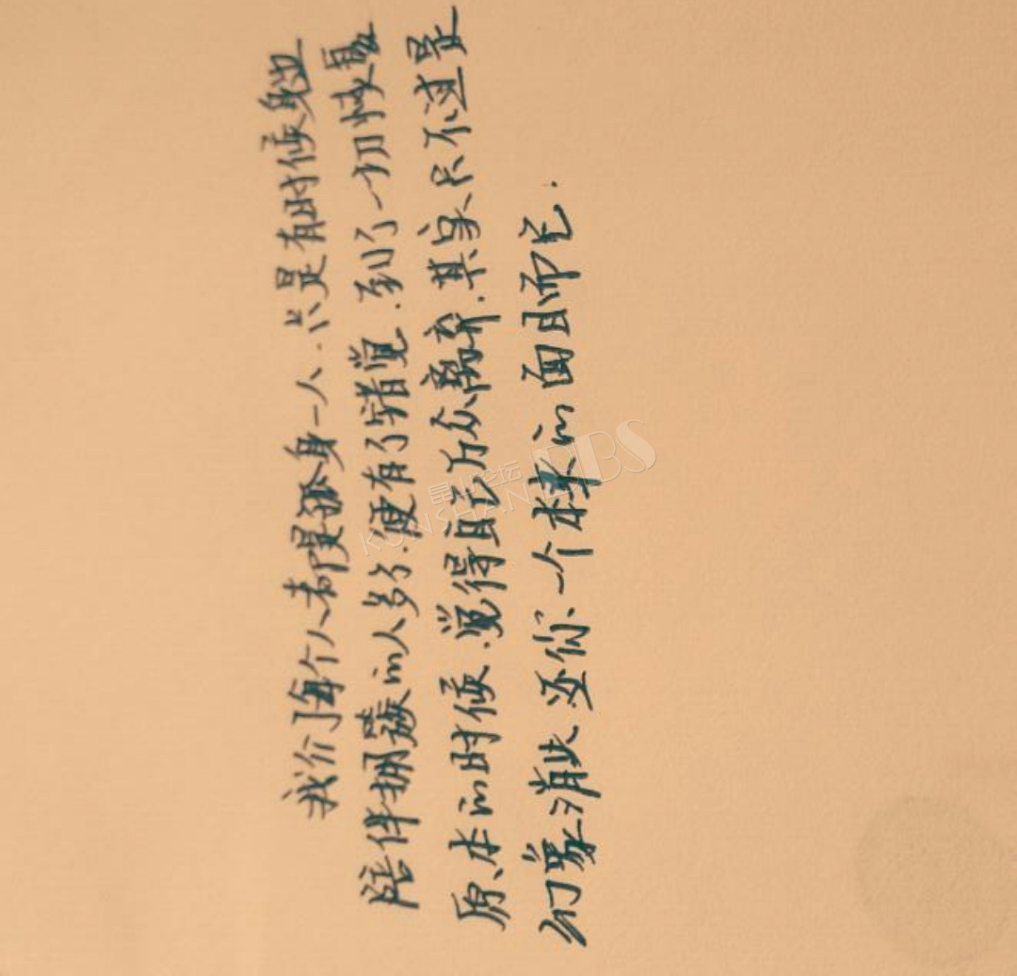 我们每个人都是孤身一人.只是有时候身边
陪伴拥簇的人多了.便有了错觉.到了一切恢复
原本的时候.觉得自己万众离弃.其实只不过是
幻象消失还你一个本来的面目而已.
昆山论坛
KUNSHAN BBS